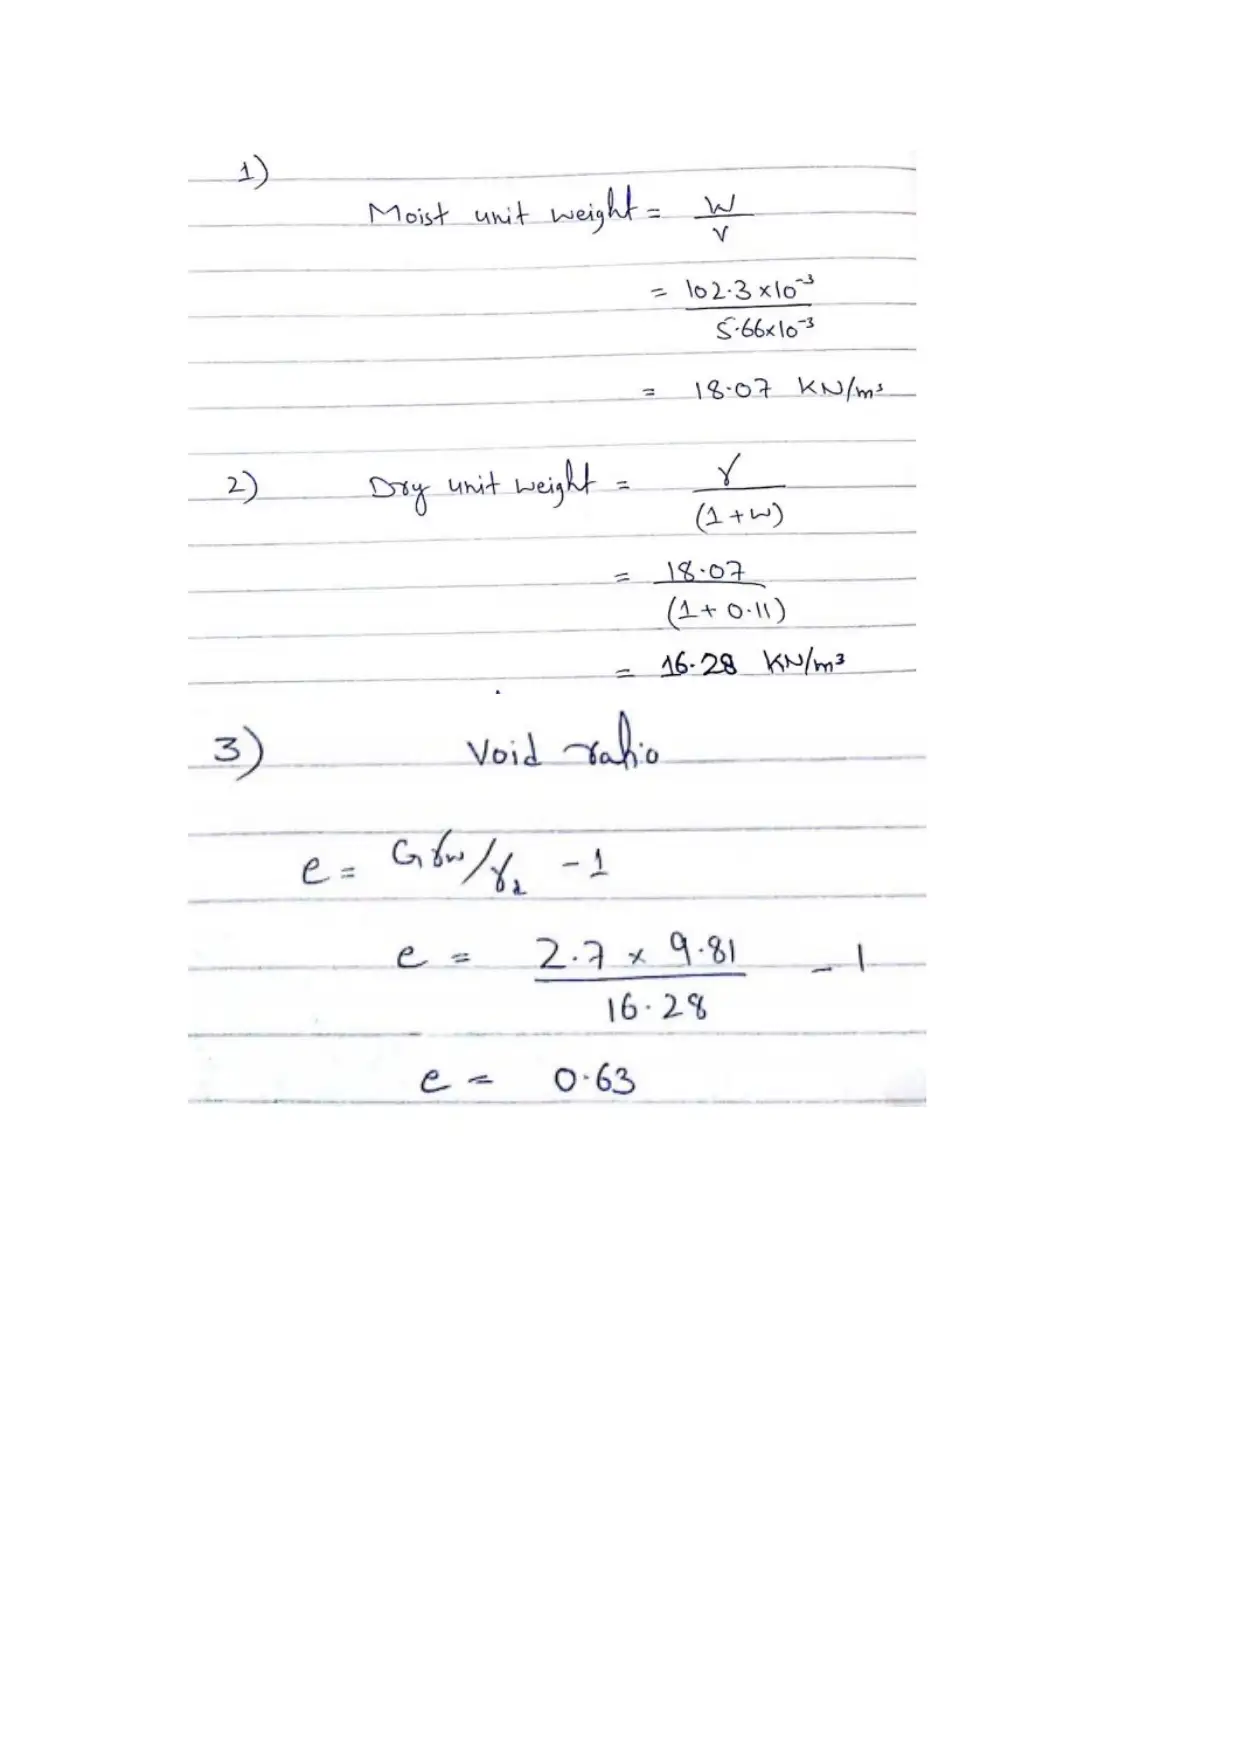 1)
Moist unit weight = W
V
= 102.3 ×10⁻³
5.66×10⁻³
= 18.07 KN/m³
2) Dry unit weight = γ
(1 + w)
= 18.07
(1 + 0.11)
= 16.28 KN/m³
3) Void ratio
e = Gγw/γd - 1
e = 2.7 × 9.81 - 1
16.28
e = 0.63